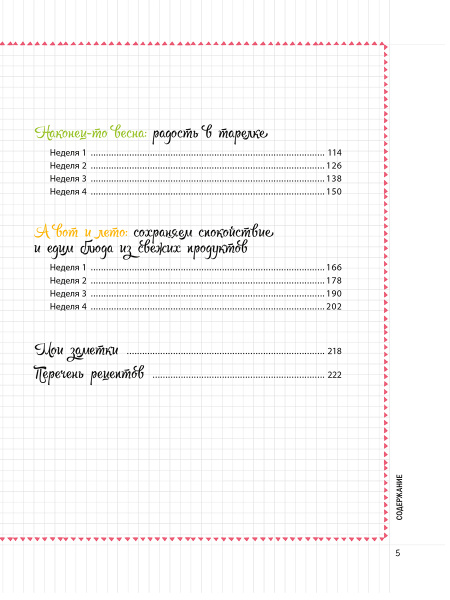 Наконец-то весна: радость в тарелке
Неделя 1 ........ 114
Неделя 2 ........ 126
Неделя 3 ........ 138
Неделя 4 ........ 150
А вот и лето: сохраняем спокойствие
и едим блюда из свежих продуктов
Неделя 1 ........ 166
Неделя 2 ........ 178
Неделя 3 ........ 190
Неделя 4 ........ 202
Мои заметки ........ 218
Перечень рецептов ........ 222
СОДЕРЖАНИЕ
5